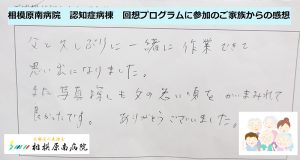 相模原南病院 認知症病棟 回想プログラムに参加のご家族からの感想
父と久しぶりに一緒に作業できて
思い出になりました。
また写真探しも父の若い頃をかいまみれて
良かったです。 ありがとうございました。
相模原南病院